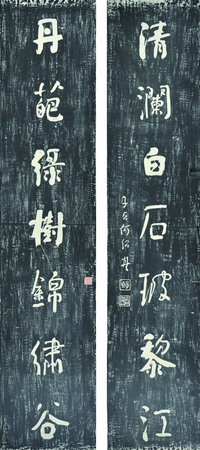 清瀾白石玻黎江
子貞何紹基
丹葩綠樹錦繡谷